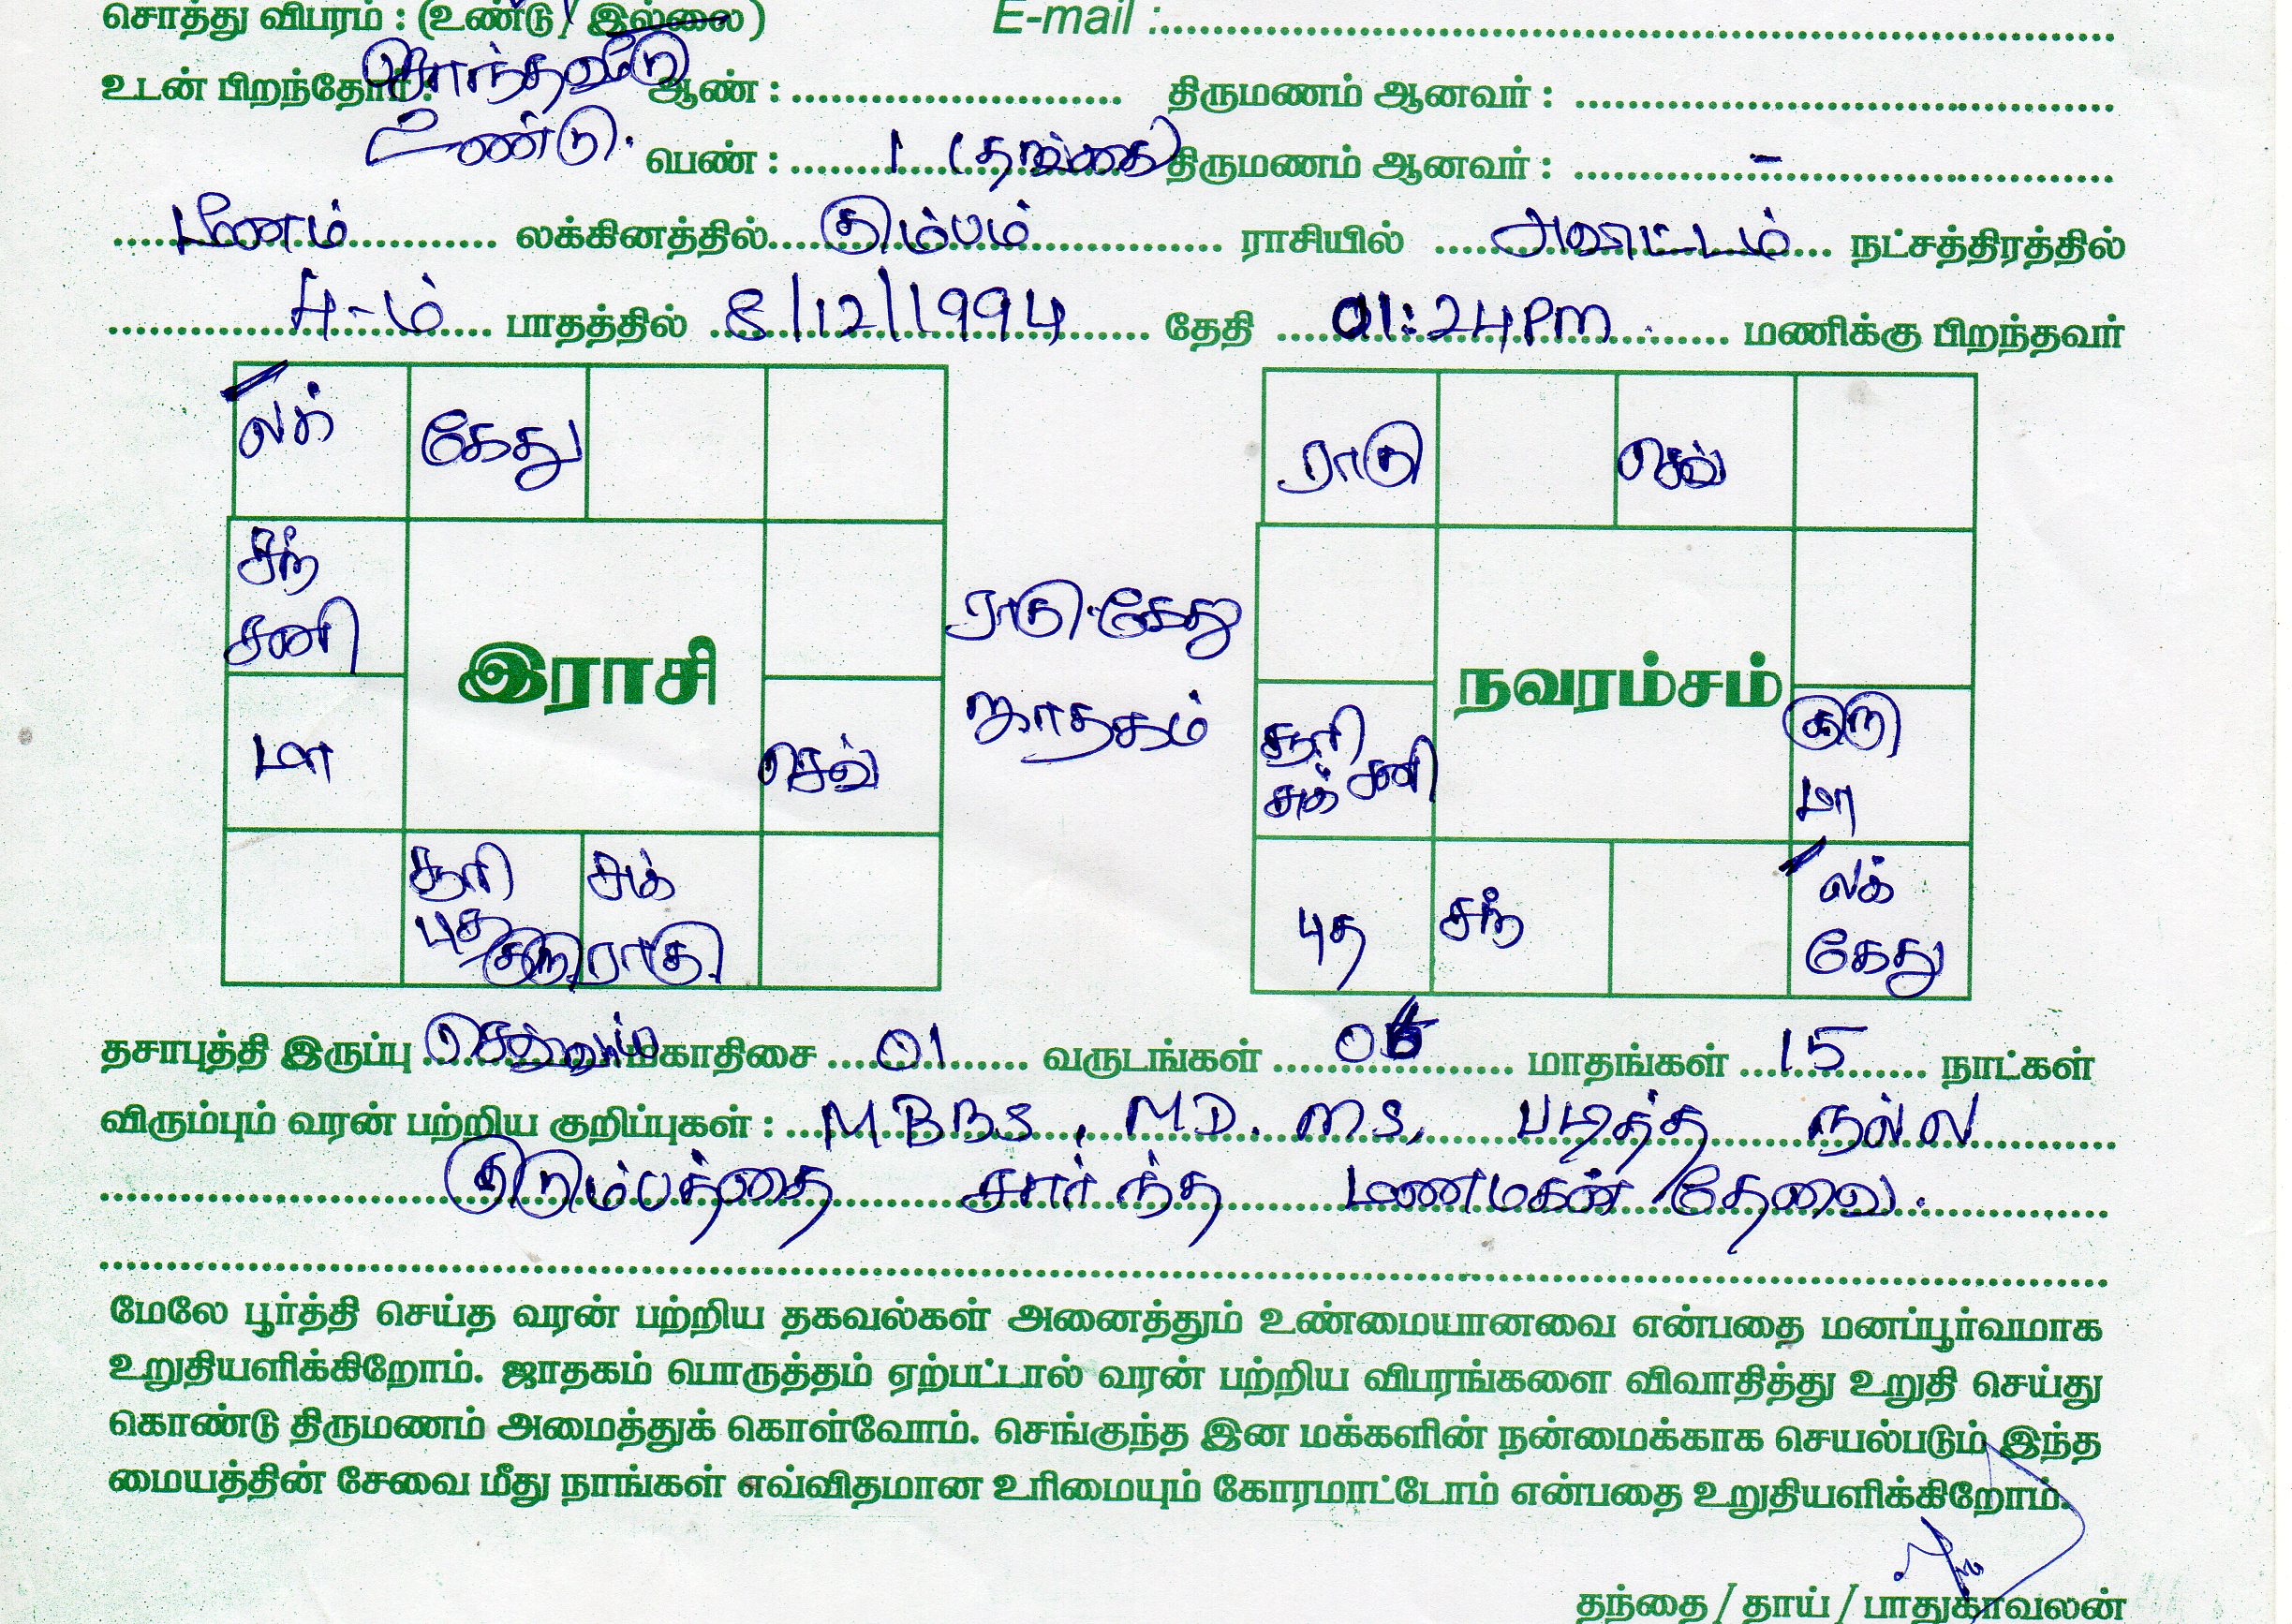 சொத்து விபரம் : (உண்டு / இல்லை) E-mail :
சொந்தவீடு
உடன் பிறந்தோர் : ஆண் : திருமணம் ஆனவர் :
உண்டு. பெண் : 1 (தங்கை) திருமணம் ஆனவர் : -
மீனம் லக்கினத்தில் கும்பம் ராசியில் அவிட்டம் நட்சத்திரத்தில்
4-ம் பாதத்தில் 8/12/1994 தேதி 01:24 PM மணிக்கு பிறந்தவர்
லக் கேது
சந்
சனி
மா
இராசி
செவ்
சூரி சுக்
புத குரு ராகு
ராகு கேது
ஜாதகம்
ராகு செவ்
நவரம்சம்
சூரி குரு
சுக் சனி மா
புத சந் லக்
கேது
தசாபுத்தி இருப்பு செவ்வாய் மகாதிசை 01 வருடங்கள் மாதங்கள் 15 நாட்கள்
விரும்பும் வரன் பற்றிய குறிப்புகள் : MBBS, MD. MS, படித்த நல்ல
குடும்பத்தை சார்ந்த மணமகன் தேவை.
மேலே பூர்த்தி செய்த வரன் பற்றிய தகவல்கள் அனைத்தும் உண்மையானவை என்பதை மனப்பூர்வமாக
உறுதியளிக்கிறோம். ஜாதகம் பொருத்தம் ஏற்பட்டால் வரன் பற்றிய விபரங்களை விவாதித்து உறுதி செய்து
கொண்டு திருமணம் அமைத்துக் கொள்வோம். செங்குந்த இன மக்களின் நன்மைக்காக செயல்படும் இந்த
மையத்தின் சேவை மீது நாங்கள் எவ்விதமான உரிமையும் கோரமாட்டோம் என்பதை உறுதியளிக்கிறோம்.
தந்தை / தாய் / பாதுகாவலன்